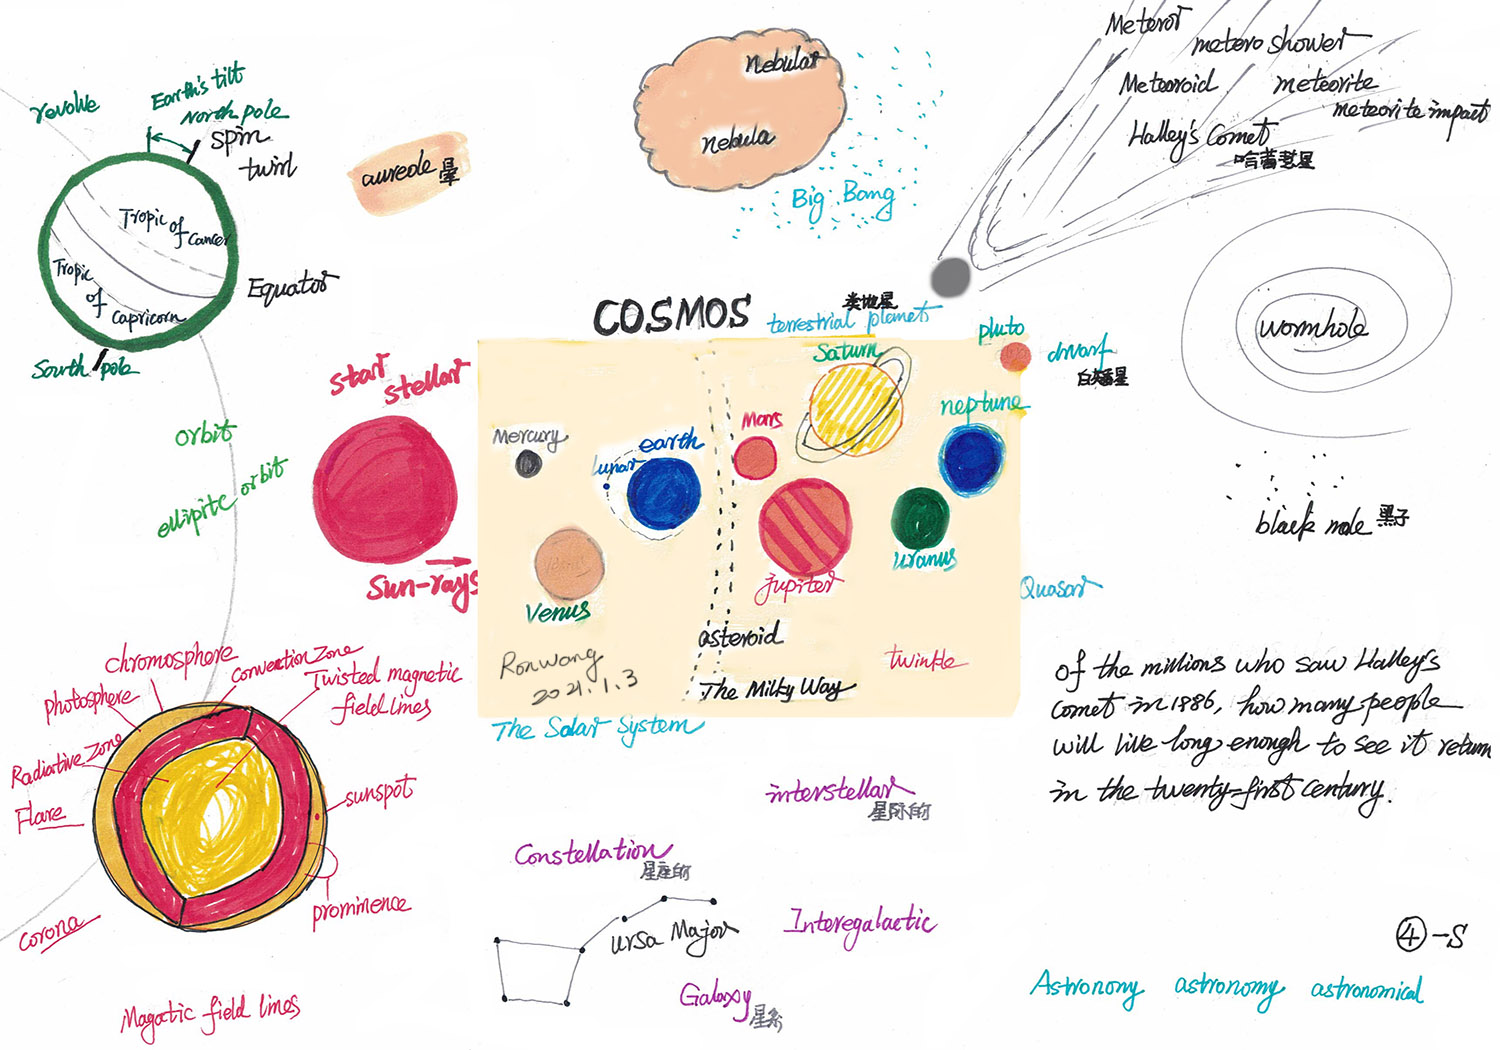 revolve
Earth's tilt
North pole
spin
twirl
Tropic of Cancer
Tropic of Capricorn
Equator
South pole
aureole 晕
nebular
nebula
Big Bang
Meteror
metero shower
Meteoroid
meteorite
meteorite impact
Halley's Comet
哈雷彗星
wormhole
COSMOS
类地星
terrestrial planet
Saturn
pluto
dwarf
neptune
Mars
Mercury
earth
Lunar
Venus
Jupiter
Uranus
asteroid
twinkle
The Milky Way
Ronwang
2021.1.3
The Solar System
star
stellar
Sun-rays
orbit
ellipitc orbit
Quasar
black mole 黑子
chromosphere
photosphere
convection zone
Twisted magnetic
field lines
Radiative zone
Flare
sunspot
prominence
corona
Magatic field lines
of the millions who saw Halley's
comet in 1886, how many people
will live long enough to see it return
in the twenty-first century.
interstellar
星际的
Constellation
星座的
Ursa Major
Interegalactic
Galaxy
星系
④-S
Astronony astronomy astronomical